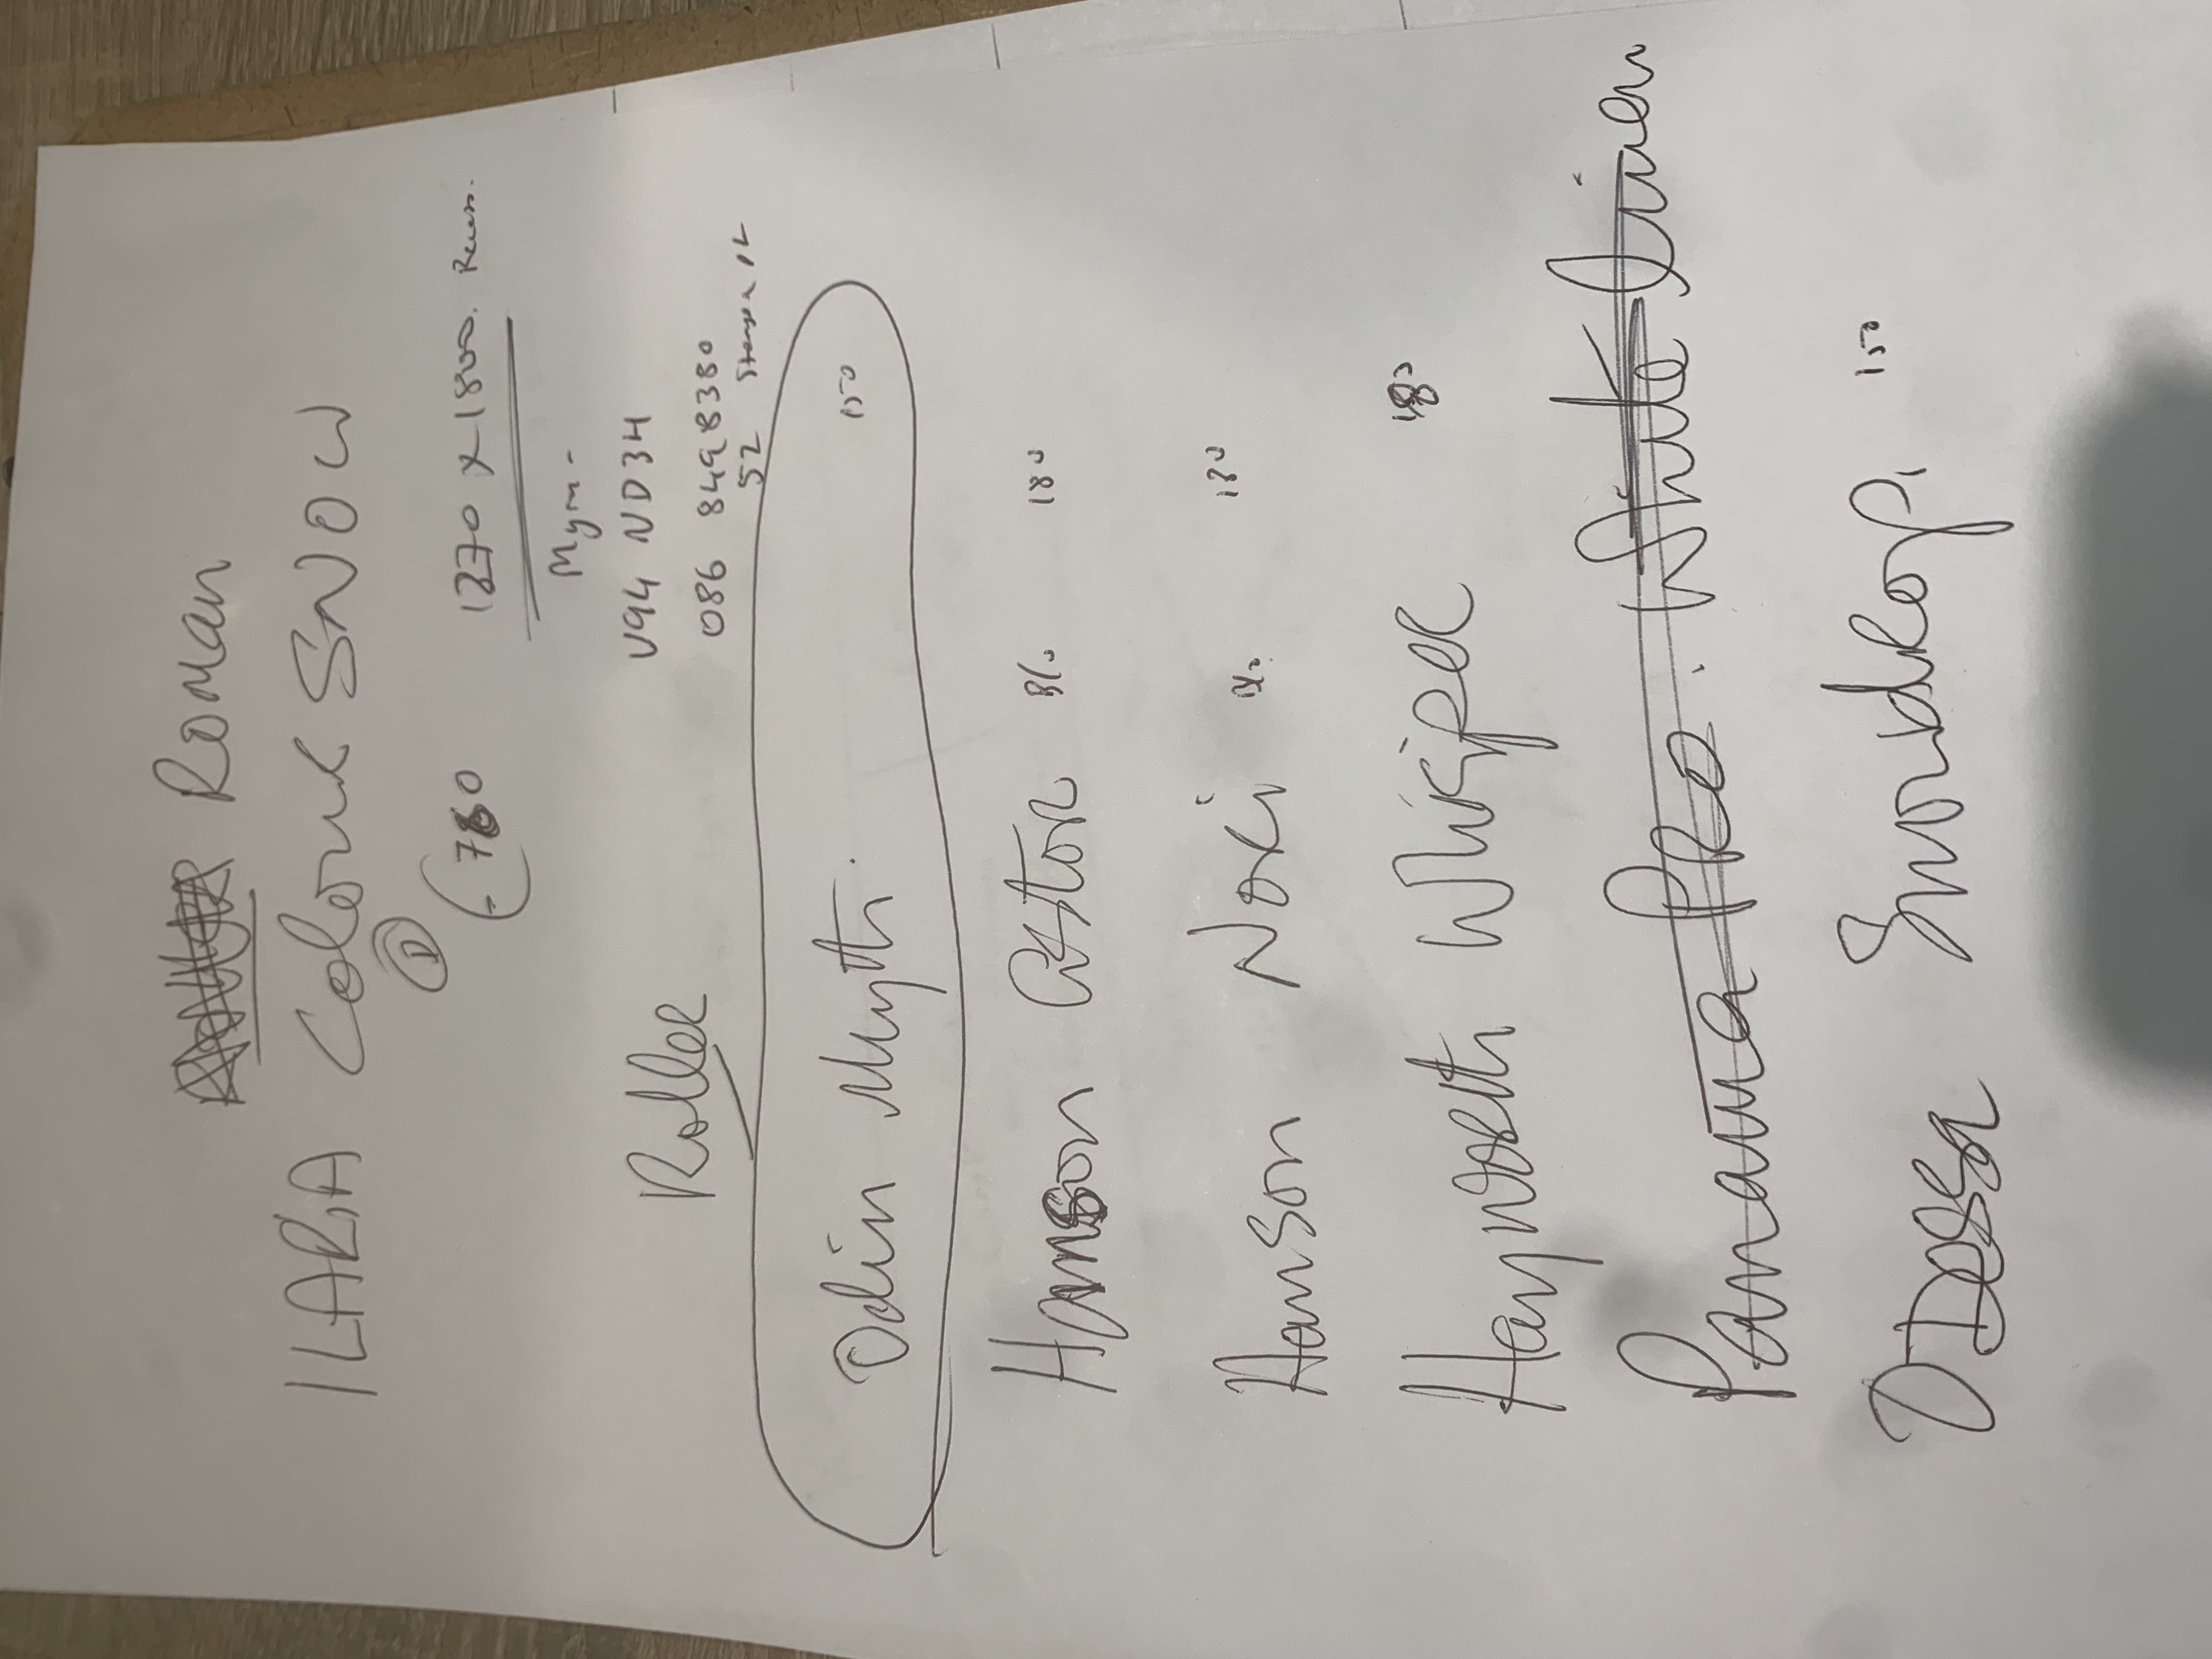 Roman
ILARIA Colour SNOW
D
(- 780
1270 x 1800. Recess.
Myra -
V94 ND3H
086 8498380
52
Roller
Odin Myth. 150
Hanson Astor 180
Hanson Noxi 180
Hayworth Whisper 180
Panama Pro. White
Odessa Snowdrop, 150